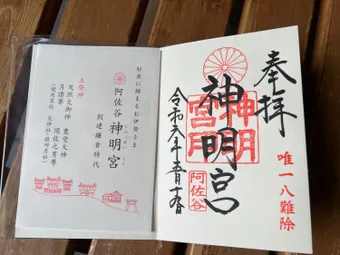 奉拝
唯一八難除
神明宮
神明宮
阿佐谷
令和
阿佐谷 神明宮
創建鎌倉時代
主祭神
天照大御神 豊受大神
月讀尊 須佐之男尊